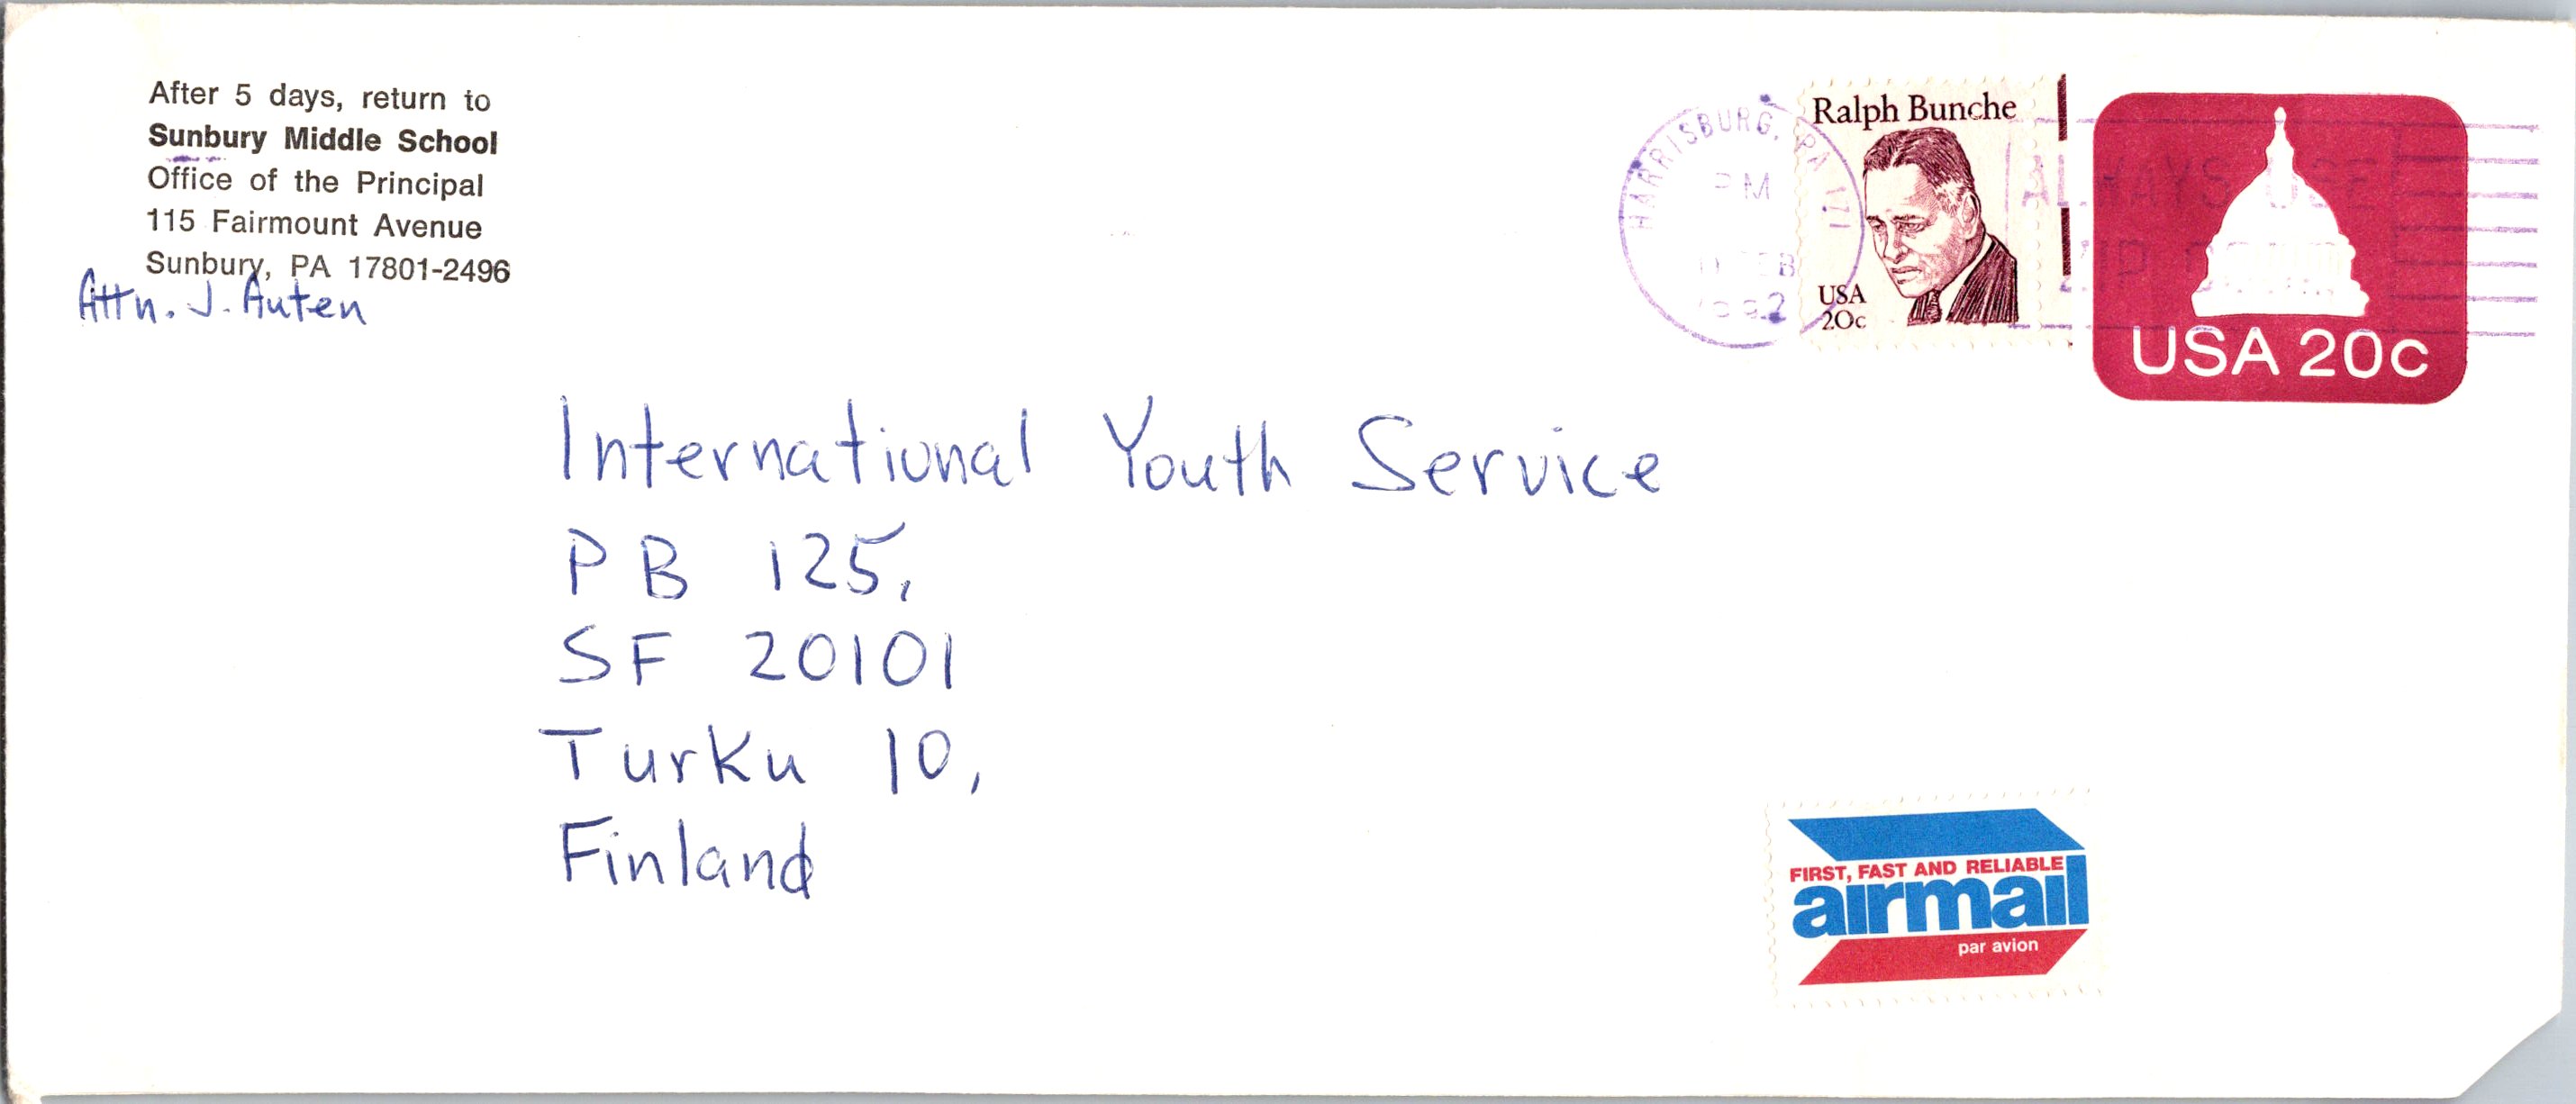 After 5 days, return to
Sunbury Middle School
Office of the Principal
115 Fairmount Avenue
Sunbury, PA 17801-2496
Attn. J. Auten
HARRISBURG, PA 171
PM
FEB
1992
Ralph Bunche
USA
20c
ALWAYS USE
ZIP
USA 20c
International Youth Service
PB 125,
SF 20101
Turku 10,
Finland
FIRST, FAST AND RELIABLE
airmail
par avion